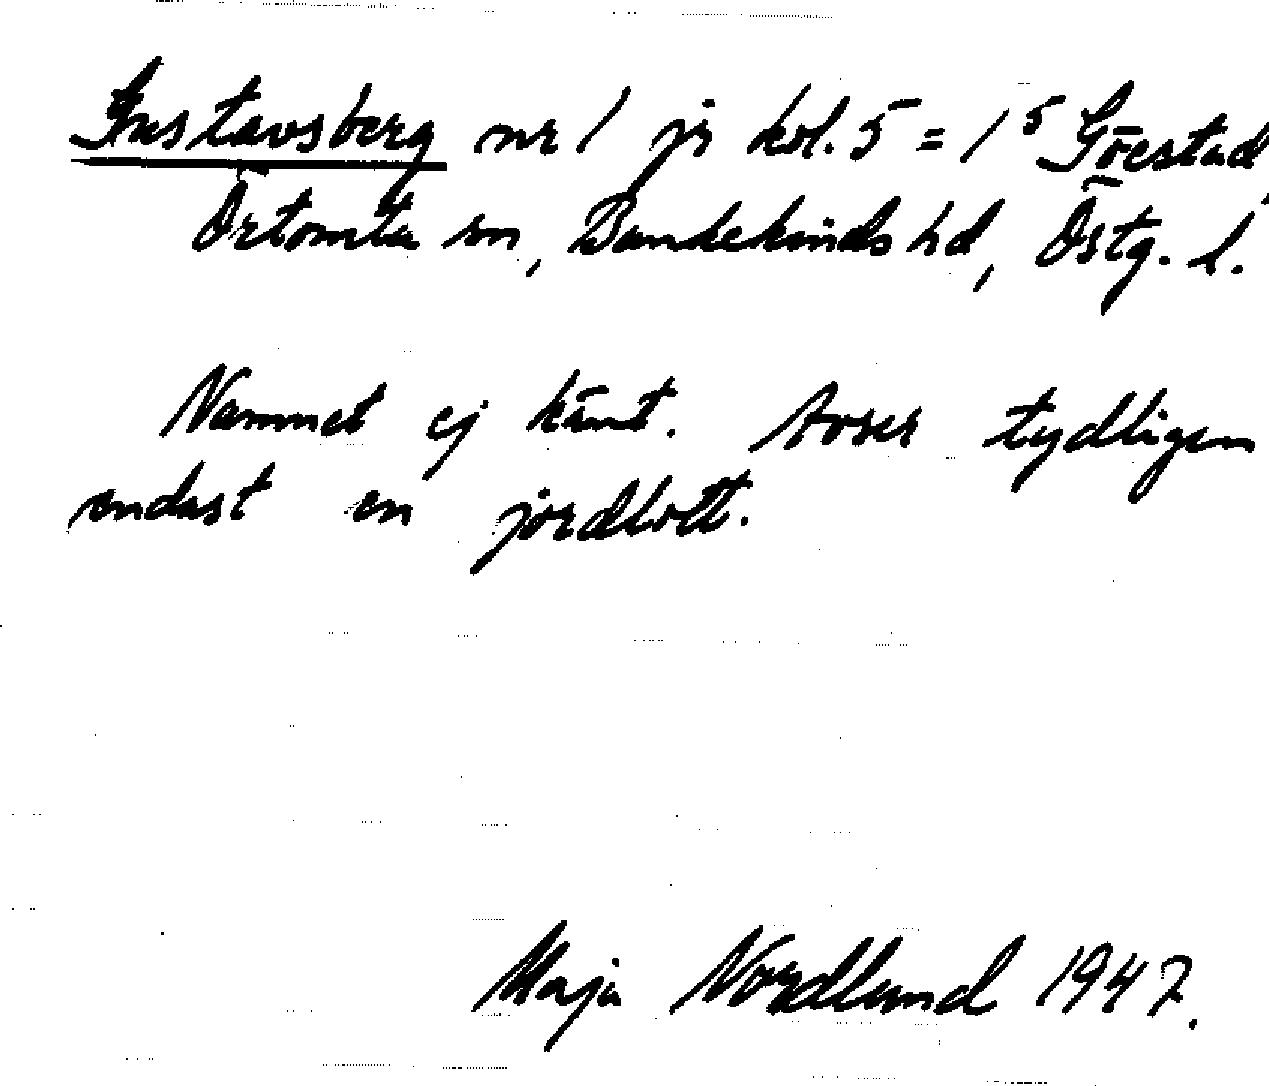 Gustavsberg nr 1 jr kol. 5 = 1⁵ Görstad,
Örtomta sn, Bankekinds hd, Östg. l.
Namnet ej känt. Avser tydligen
endast en jordlott.
Maja Nordlund 1947.